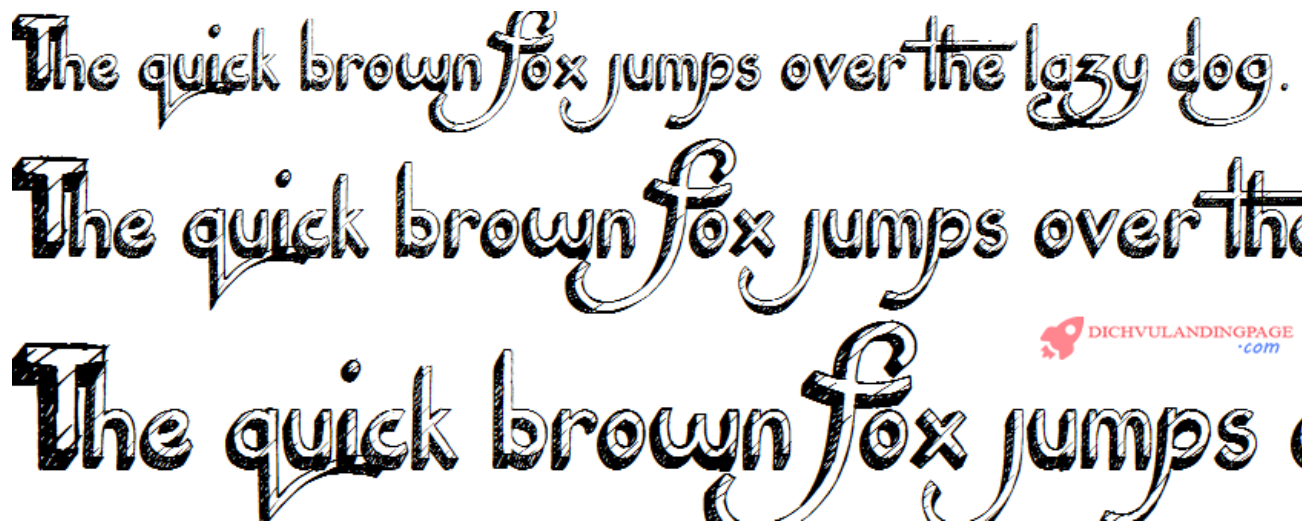 The quick brown fox jumps over the lazy dog.
The quick brown fox jumps over the
DICHVULANDINGPAGE
.com
The quick brown fox jumps